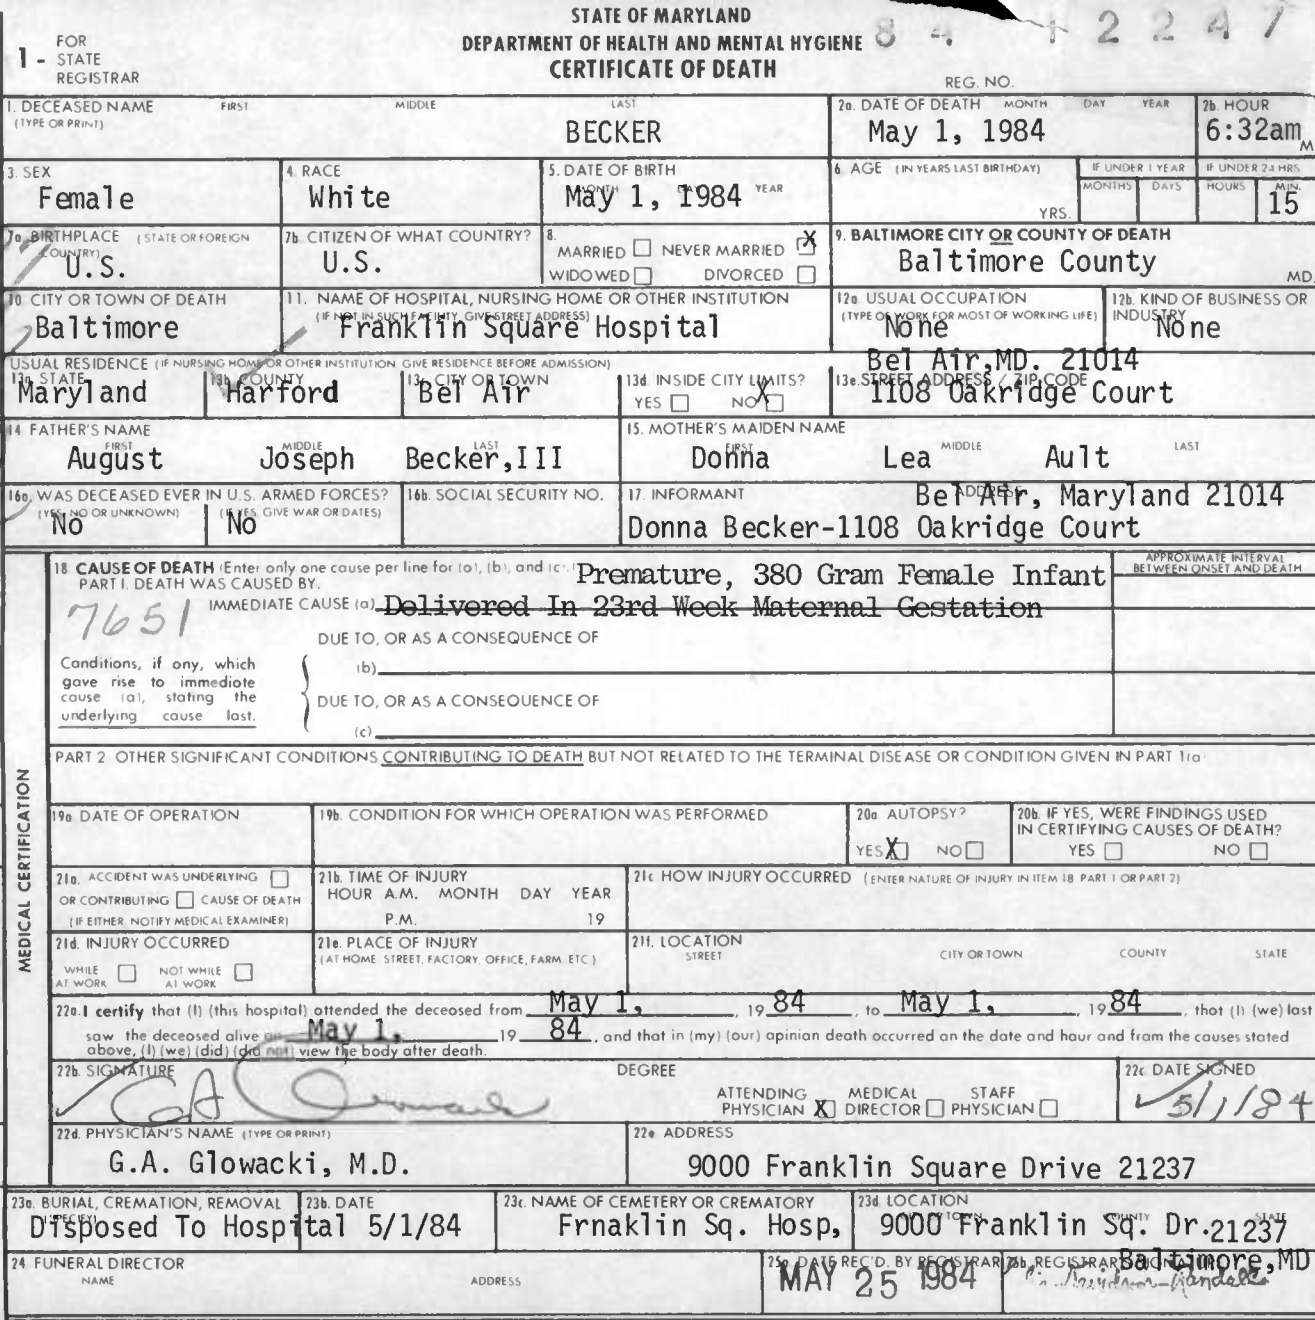 STATE OF MARYLAND
DEPARTMENT OF HEALTH AND MENTAL HYGIENE
CERTIFICATE OF DEATH
1 - FOR STATE REGISTRAR
84 12247
REG. NO.
1. DECEASED NAME (TYPE OR PRINT) FIRST MIDDLE LAST
BECKER
2a. DATE OF DEATH MONTH DAY YEAR
May 1, 1984
2b. HOUR
6:32am M
3. SEX
Female
4. RACE
White
5. DATE OF BIRTH MONTH DAY YEAR
May 1, 1984
6. AGE (IN YEARS LAST BIRTHDAY) YRS.
IF UNDER 1 YEAR MONTHS DAYS
IF UNDER 24 HRS HOURS MIN.
15
7a. BIRTHPLACE (STATE OR FOREIGN COUNTRY)
U.S.
7b. CITIZEN OF WHAT COUNTRY?
U.S.
8. MARRIED NEVER MARRIED X
WIDOWED DIVORCED
9. BALTIMORE CITY OR COUNTY OF DEATH
Baltimore County MD.
10. CITY OR TOWN OF DEATH
Baltimore
11. NAME OF HOSPITAL, NURSING HOME OR OTHER INSTITUTION
(IF NOT IN SUCH FACILITY, GIVE STREET ADDRESS)
Franklin Square Hospital
12a. USUAL OCCUPATION
(TYPE OF WORK FOR MOST OF WORKING LIFE)
None
12b. KIND OF BUSINESS OR INDUSTRY
None
USUAL RESIDENCE (IF NURSING HOME OR OTHER INSTITUTION GIVE RESIDENCE BEFORE ADMISSION)
13a. STATE
Maryland
13b. COUNTY
Harford
13c. CITY OR TOWN
Bel Air
13d. INSIDE CITY LIMITS?
YES NO X
Bel Air,MD. 21014
13e. STREET ADDRESS / ZIP CODE
1108 Oakridge Court
14. FATHER'S NAME
FIRST MIDDLE LAST
August Joseph Becker,III
15. MOTHER'S MAIDEN NAME
FIRST MIDDLE LAST
Donna Lea Ault
16a. WAS DECEASED EVER IN U.S. ARMED FORCES?
(YES, NO OR UNKNOWN) (IF YES, GIVE WAR OR DATES)
No No
16b. SOCIAL SECURITY NO.
17. INFORMANT ADDRESS
Bel Air, Maryland 21014
Donna Becker-1108 Oakridge Court
MEDICAL CERTIFICATION
18 CAUSE OF DEATH (Enter only one cause per line for (a), (b), and (c).)
PART I. DEATH WAS CAUSED BY.
APPROXIMATE INTERVAL BETWEEN ONSET AND DEATH
Premature, 380 Gram Female Infant
7651
IMMEDIATE CAUSE (a) Delivered In 23rd Week Maternal Gestation
DUE TO, OR AS A CONSEQUENCE OF
(b)
DUE TO, OR AS A CONSEQUENCE OF
(c)
Conditions, if any, which
gave rise to immediate
cause (a), stating the
underlying cause last.
PART 2 OTHER SIGNIFICANT CONDITIONS CONTRIBUTING TO DEATH BUT NOT RELATED TO THE TERMINAL DISEASE OR CONDITION GIVEN IN PART 1(a)
19a. DATE OF OPERATION
19b. CONDITION FOR WHICH OPERATION WAS PERFORMED
20a. AUTOPSY?
YES X NO
20b. IF YES, WERE FINDINGS USED
IN CERTIFYING CAUSES OF DEATH?
YES NO
21a. ACCIDENT WAS UNDERLYING
OR CONTRIBUTING CAUSE OF DEATH
(IF EITHER, NOTIFY MEDICAL EXAMINER)
21b. TIME OF INJURY
HOUR A.M. MONTH DAY YEAR
P.M. 19
21c. HOW INJURY OCCURRED (ENTER NATURE OF INJURY IN ITEM 18 PART 1 OR PART 2)
21d. INJURY OCCURRED
WHILE AT WORK NOT WHILE AT WORK
21e. PLACE OF INJURY
(AT HOME STREET, FACTORY, OFFICE, FARM, ETC.)
21f. LOCATION
STREET CITY OR TOWN COUNTY STATE
22a. I certify that (I) (this hospital) attended the deceased from May 1, , 19 84 , to May 1, , 19 84 , that (I) (we) last
saw the deceased alive on May 1, 19 84 , and that in (my) (our) opinian death occurred on the date and hour and from the causes stated
above, (I) (we) (did) (did not) view the body after death.
22b. SIGNATURE
DEGREE
ATTENDING PHYSICIAN X MEDICAL DIRECTOR STAFF PHYSICIAN
22c. DATE SIGNED
5/1/84
22d. PHYSICIAN'S NAME (TYPE OR PRINT)
G.A. Glowacki, M.D.
22e. ADDRESS
9000 Franklin Square Drive 21237
23a. BURIAL, CREMATION, REMOVAL (SPECIFY)
23b. DATE
Disposed To Hospital 5/1/84
23c. NAME OF CEMETERY OR CREMATORY
Frnaklin Sq. Hosp,
23d. LOCATION
CITY OR TOWN COUNTY STATE
9000 Franklin Sq. Dr.21237
Baltimore,MD
24. FUNERAL DIRECTOR
NAME ADDRESS
25a. DATE REC'D. BY REGISTRAR
MAY 25 1984
25b. REGISTRAR'S SIGNATURE